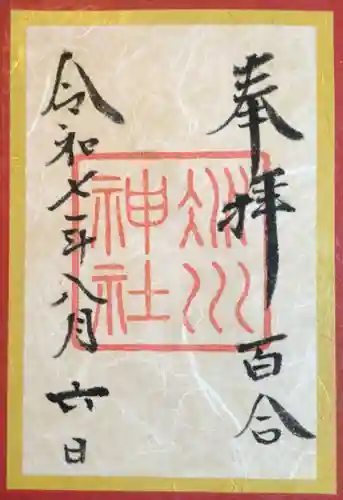 奉拝 百合
氷川
神社
令和七年八月六日